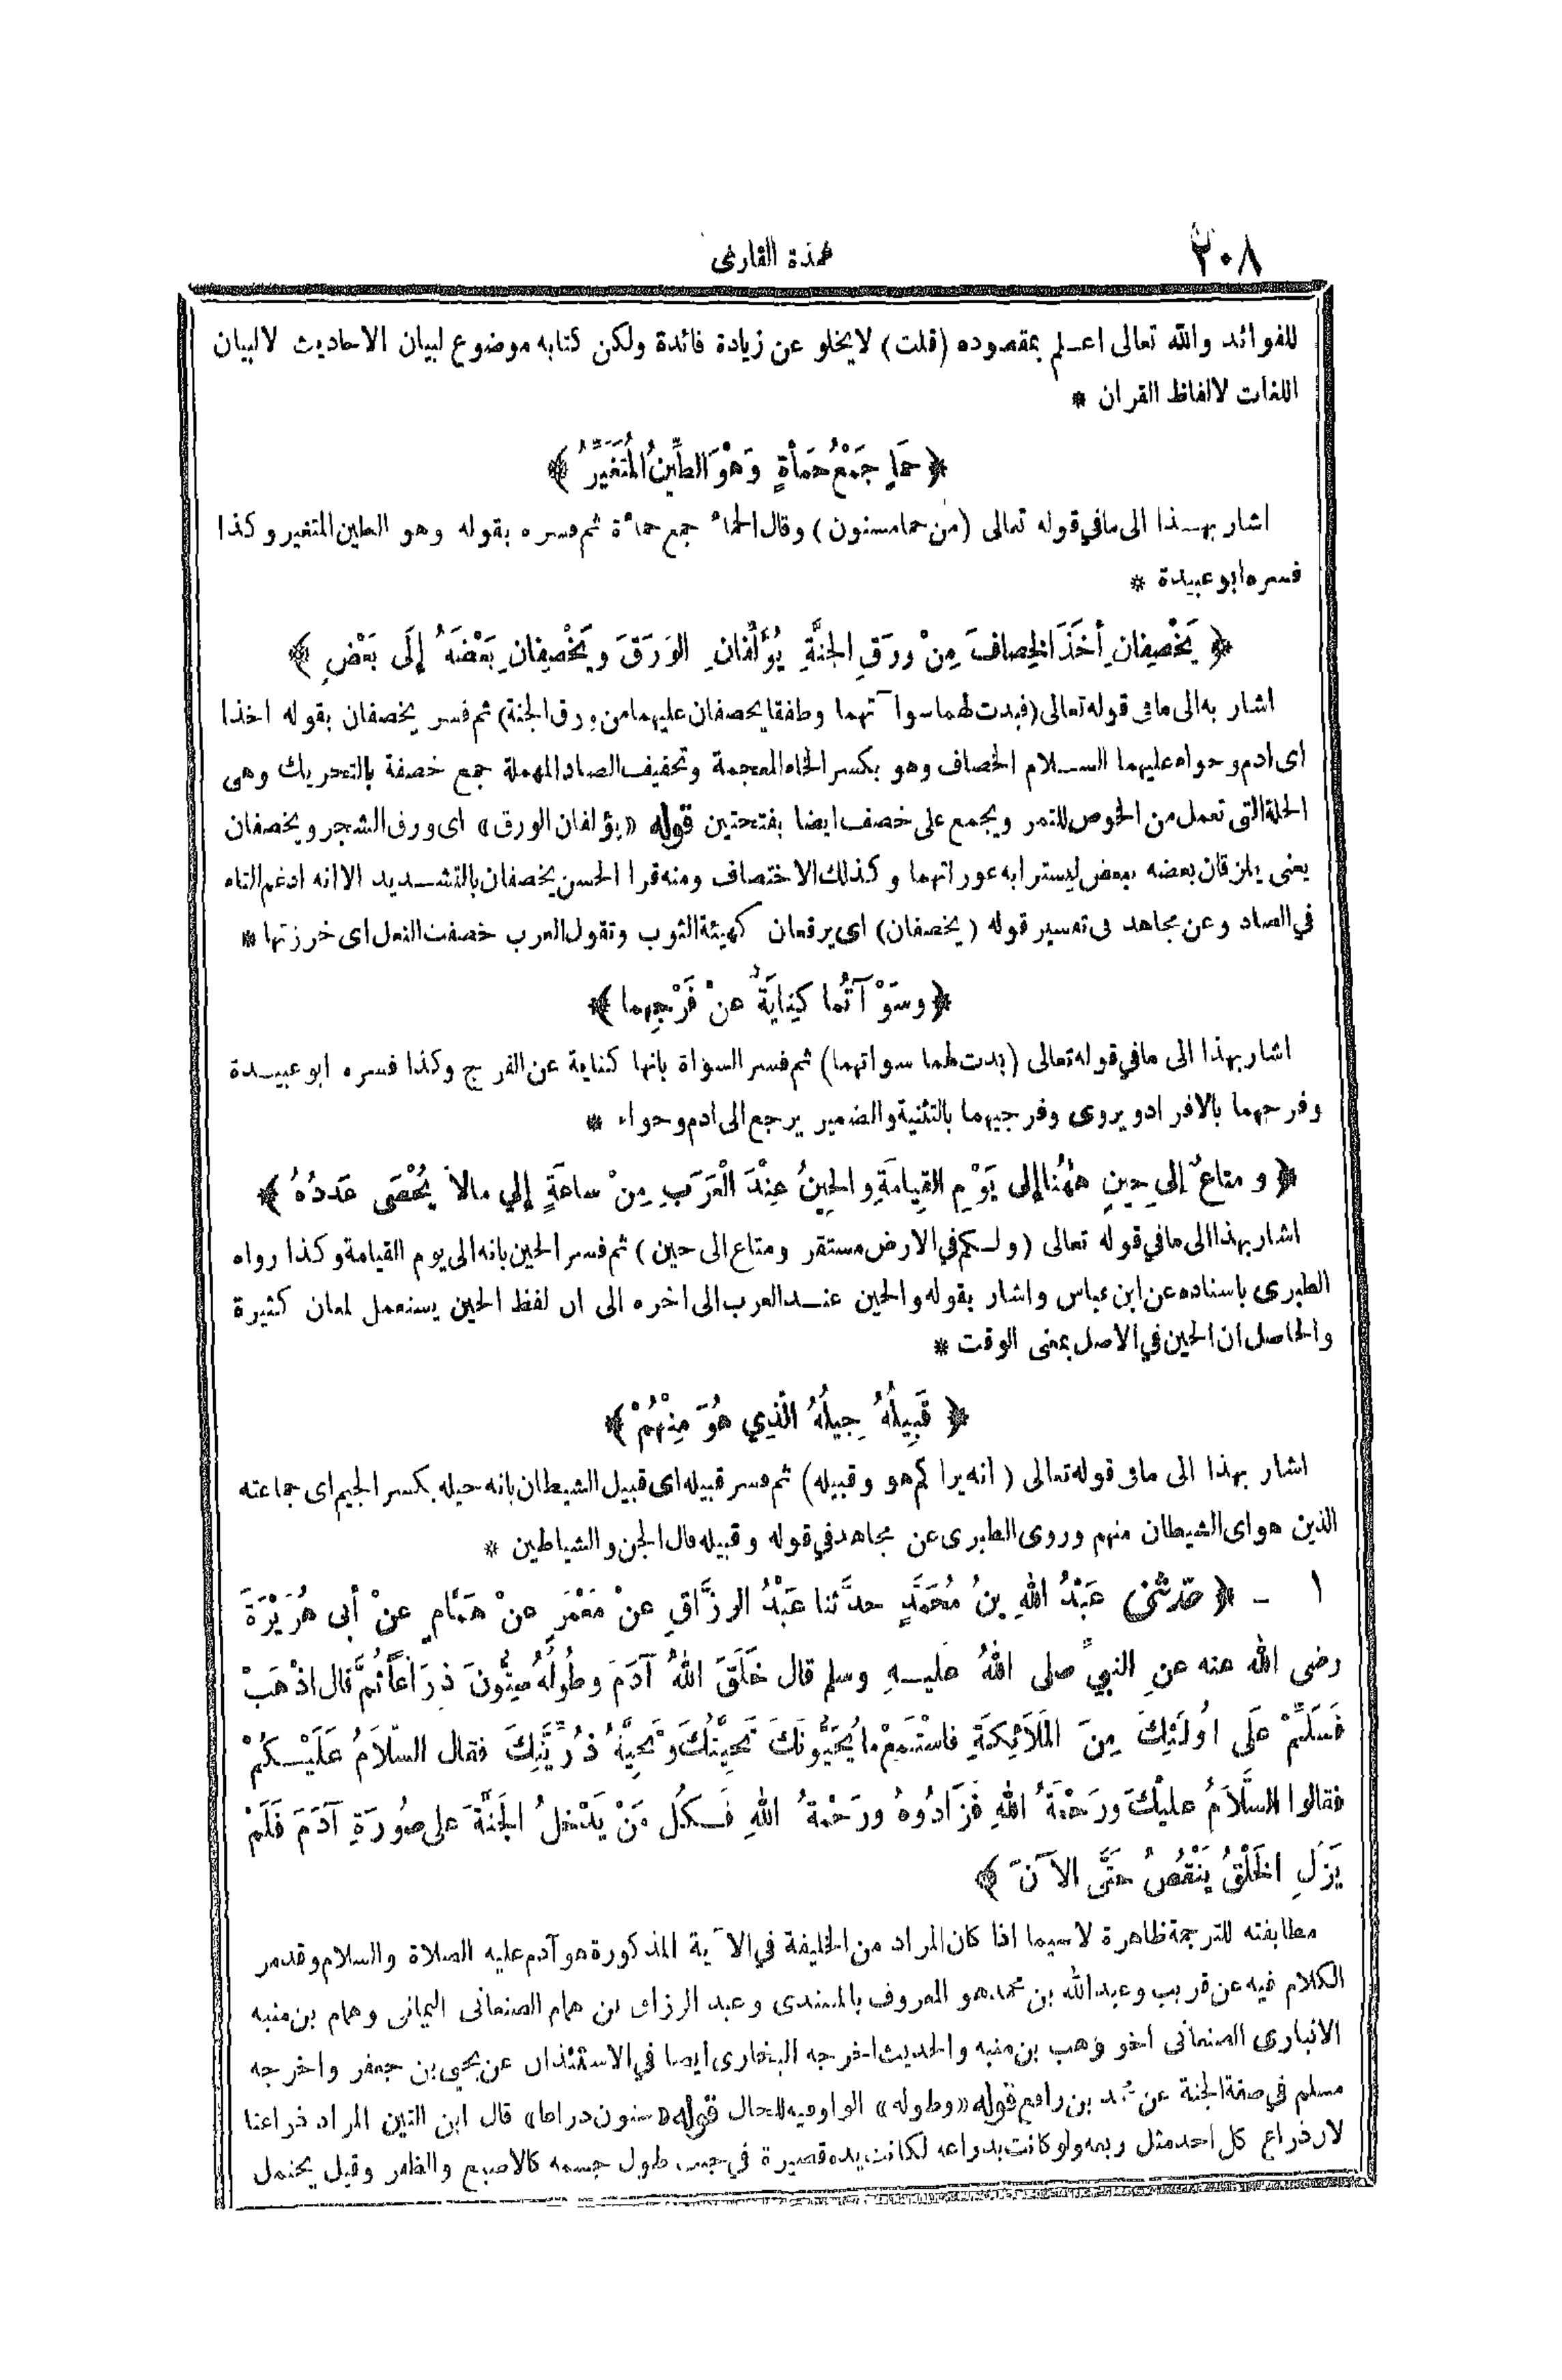 ٢٠٨
عمدة القارى
للفوائد والله تعالى اعلم بمقصوده (قلت) لايخلو عن زيادة فائدة ولكن كتابه موضوع لبيان الاحاديث لالبيان
اللغات لالفاظ القران *
﴿ حَمَإٍ جَمْعُ حَمْأَةٍ وَهْوَ الطِّينُ الْمُتَغَيِّرُ ﴾
اشار بهذا الى مافي قوله تعالى (من حمامسنون) وقال الحمأ جمع حمأة ثم فسره بقوله وهو الطين المتغير وكذا
فسره ابو عبيدة *
﴿ يَخْصِفَانِ أَخَذَا الخِصافَ مِنْ ورَقِ الجَنَّةِ يُؤَلِّفانِ الوَرَقَ ويَخْصِفانِ بَعْضَهُ إلَى بَعْضٍ ﴾
اشار به الى مافى قوله تعالى (فبدت لهما سوآتهما وطفقا يخصفان عليهما من ورق الجنة) ثم فسر يخصفان بقوله اخذا
اى ادم وحواء عليهما السلام الخصاف وهو بكسر الخاء المعجمة وتخفيف الصاد المهملة جمع خصفة بالتحريك وهى
الحلة التى تعمل من الخوص للتمر ويجمع على خصف ايضا بفتحتين قوله «يؤلفان الورق» اى ورق الشجر ويخصفان
يعنى يلزقان بعضه ببعض ليسترا به عوراتهما وكذلك الاختصاف ومنه قرا الحسن يخصفان بالتشديد الا انه ادغم التاء
في الصاد وعن مجاهد فى تفسير قوله (يخصفان) اى يرقعان كهيئة الثوب وتقول العرب خصفت النعل اى خرزتها *
﴿ وسَوْآتُهُما كِنايَةٌ عنْ فَرْجِهِما ﴾
اشار بهذا الى مافي قوله تعالى (بدت لهما سواتهما) ثم فسر السوأة بانها كناية عن الفرج وكذا فسره ابو عبيدة
وفرجهما بالافراد ويروى وفرجيهما بالتثنية والضمير يرجع الى ادم وحواء *
﴿ ومتاعٌ إلى حِينٍ هٰهُنا إلى يَوْمِ القِيامَةِ والحِينُ عِنْدَ الْعَرَبِ مِنْ ساعَةٍ إلي مالاَ يُحْصَى عَدَدُهُ ﴾
اشار بهذا الى مافي قوله تعالى (ولكم في الارض مستقر ومتاع الى حين) ثم فسر الحين بانه الى يوم القيامة وكذا رواه
الطبرى باسناده عن ابن عباس واشار بقوله والحين عند العرب الى اخره الى ان لفظ الحين يستعمل لمعان كثيرة
والحاصل ان الحين في الاصل بمعنى الوقت *
﴿ قَبِيلُهُ جِيلُهُ الَّذِي هُوَ مِنْهُمْ ﴾
اشار بهذا الى مافى قوله تعالى (انه يراكم هو وقبيله) ثم فسر قبيله اى قبيل الشيطان بانه جيله بكسر الجيم اى جماعته
الذين هو اى الشيطان منهم وروى الطبرى عن مجاهد في قوله وقبيله قال الجن والشياطين *
١ - ﴿ حَدَّثَنِي عَبْدُ اللهِ بنُ مُحَمَّدٍ حدَّثنا عَبْدُ الرزَّاقِ عنْ مَعْمَرٍ عنْ هَمَّامٍ عنْ أبى هُرَيْرَةَ
رضى الله عنه عنِ النبيِّ صلى اللهُ عليهِ وسلم قال خَلَقَ اللهُ آدَمَ وطُولُهُ سِتُّونَ ذِرَاعَاً ثُمَّ قال اذْهَبْ
فَسَلِّمْ عَلَى اُولَئِكَ مِنَ المَلاَئِكَةِ فاسْتَمِعْ ما يُحَيُّونَكَ تَحِيَّتُكَ وتَحِيَّةُ ذُرِّيَّتِكَ فقال السَّلاَمُ عَلَيْكُمْ
فقالوا السَّلاَمُ عليْكَ ورَحْمَةُ اللهِ فَزَادُوهُ ورَحْمةُ اللهِ فَكُلُّ مَنْ يَدْخلُ الجَنَّةَ على صُورَةِ آدَمَ فَلَمْ
يَزَلِ الخَلْقُ يَنْقُصُ حَتَّى الآنَ ﴾
مطابقته للترجمة ظاهرة لاسيما اذا كان المراد من الخليفة في الآية المذكورة هو آدم عليه الصلاة والسلام وقد مر
الكلام فيه عن قريب وعبد الله بن محمد هو المعروف بالمسندى وعبد الرزاق بن همام الصنعانى اليمانى وهمام بن منبه
الانبارى الصنعانى اخو وهب بن منبه والحديث اخرجه البخارى ايضا في الاستئذان عن يحيى بن جعفر واخرجه
مسلم في صفة الجنة عن محمد بن رافع قوله «وطوله» الواو فيه للحال قوله «ستون ذراعا» قال ابن التين المراد ذراعنا
لان ذراع كل احد مثل ربعه ولو كانت بذراعه لكانت يده قصيرة في جنب طول جسمه كالاصبع والظفر وقيل يحتمل